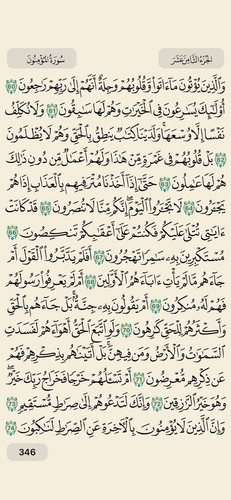 الجزء الثامن عشر
سورة المؤمنون
وَالَّذِينَ يُؤْتُونَ مَا ءَاتَوا وَّقُلُوبُهُمْ وَجِلَةٌ أَنَّهُمْ إِلَىٰ رَبِّهِمْ رَٰجِعُونَ ٦٠
أُو۟لَٰٓئِكَ يُسَٰرِعُونَ فِى الْخَيْرَٰتِ وَهُمْ لَهَا سَٰبِقُونَ ٦١ وَلَا نُكَلِّفُ
نَفْسًا إِلَّا وُسْعَهَا وَلَدَيْنَا كِتَٰبٌ يَنطِقُ بِالْحَقِّ وَهُمْ لَا يُظْلَمُونَ
٦٢ بَلْ قُلُوبُهُمْ فِى غَمْرَةٍ مِّنْ هَٰذَا وَلَهُمْ أَعْمَٰلٌ مِّن دُونِ ذَٰلِكَ
هُمْ لَهَا عَٰمِلُونَ ٦٣ حَتَّىٰٓ إِذَآ أَخَذْنَا مُتْرَفِيهِم بِالْعَذَابِ إِذَا هُمْ
يَجْـَٔرُونَ ٦٤ لَا تَجْـَٔرُوا الْيَوْمَ إِنَّكُم مِّنَّا لَا تُنصَرُونَ ٦٥ قَدْ كَانَتْ
ءَايَٰتِى تُتْلَىٰ عَلَيْكُمْ فَكُنتُمْ عَلَىٰٓ أَعْقَٰبِكُمْ تَنكِصُونَ ٦٦
مُسْتَكْبِرِينَ بِهِ سَٰمِرًا تَهْجُرُونَ ٦٧ أَفَلَمْ يَدَّبَّرُوا الْقَوْلَ أَمْ
جَآءَهُم مَّا لَمْ يَأْتِ ءَابَآءَهُمُ الْأَوَّلِينَ ٦٨ أَمْ لَمْ يَعْرِفُوا رَسُولَهُمْ
فَهُمْ لَهُ مُنكِرُونَ ٦٩ أَمْ يَقُولُونَ بِهِ جِنَّةٌ بَلْ جَآءَهُم بِالْحَقِّ
وَأَكْثَرُهُمْ لِلْحَقِّ كَٰرِهُونَ ٧٠ وَلَوِ اتَّبَعَ الْحَقُّ أَهْوَآءَهُمْ لَفَسَدَتِ
السَّمَٰوَٰتُ وَالْأَرْضُ وَمَن فِيهِنَّ بَلْ أَتَيْنَٰهُم بِذِكْرِهِمْ فَهُمْ
عَن ذِكْرِهِم مُّعْرِضُونَ ٧١ أَمْ تَسْـَٔلُهُمْ خَرْجًا فَخَرَاجُ رَبِّكَ خَيْرٌ
وَهُوَ خَيْرُ الرَّٰزِقِينَ ٧٢ وَإِنَّكَ لَتَدْعُوهُمْ إِلَىٰ صِرَٰطٍ مُّسْتَقِيمٍ ٧٣
وَإِنَّ الَّذِينَ لَا يُؤْمِنُونَ بِالْءَاخِرَةِ عَنِ الصِّرَٰطِ لَنَٰكِبُونَ ٧٤
346